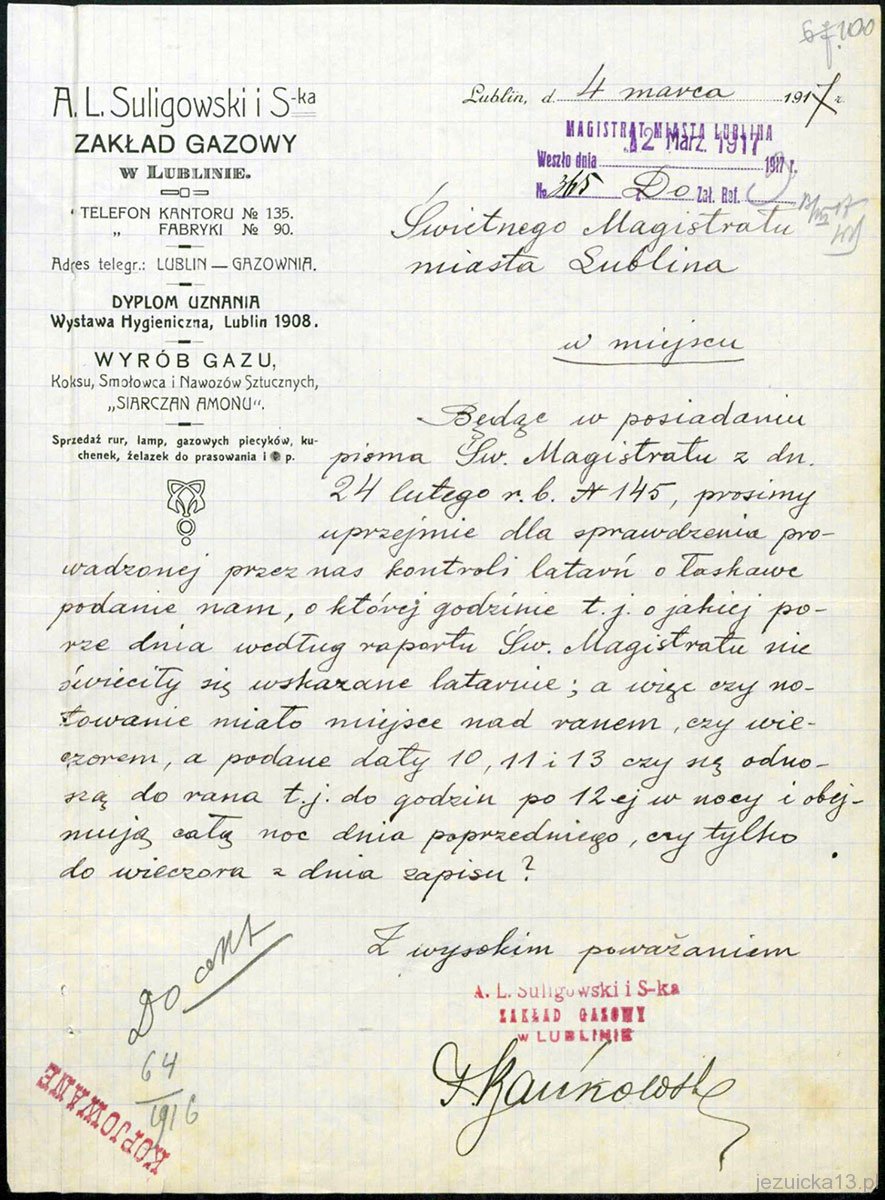 A. L. Suligowski i S-ka
ZAKŁAD GAZOWY
W LUBLINIE.
TELEFON KANTORU № 135.
„ FABRYKI № 90.
Adres telegr.: LUBLIN — GAZOWNIA.
DYPLOM UZNANIA
Wystawa Hygieniczna, Lublin 1908.
WYRÓB GAZU,
Koksu, Smołowca i Nawozów Sztucznych,
„SIARCZAN AMONU".
Sprzedaż rur, lamp, gazowych piecyków, ku-
chenek, żelazek do prasowania i p.
100
Lublin, d. 4 marca 1917 r.
MAGISTRAT MIASTA LUBLINA
12 Marz. 1917
Weszło dnia 1917 r.
№ 365 Zał. Ref.
Do
Świetnego Magistratu
miasta Lublina
w miejscu
Będąc w posiadaniu
pisma Św. Magistratu z dn.
24 lutego r. b. № 145, prosimy
uprzejmie dla sprawdzenia pro-
wadzonej przez nas kontroli latarń o łaskawe
podanie nam, o której godzinie t. j. o jakiej po-
rze dnia według raportu Św. Magistratu nie
świeciły się wskazane latarnie; a więc czy no-
towanie miało miejsce nad ranem, czy wie-
czorem, a podane daty 10, 11 i 13 czy się odno-
szą do rana t. j. do godzin po 12-ej w nocy i obej-
mują całą noc dnia poprzedniego, czy tylko
do wieczora z dnia zapisu?
Z wysokim poważaniem
A. L. Suligowski i S-ka
ZAKŁAD GAZOWY
W LUBLINIE
Do akt
64
1916
KOPJOWANE
jezuicka13.pl